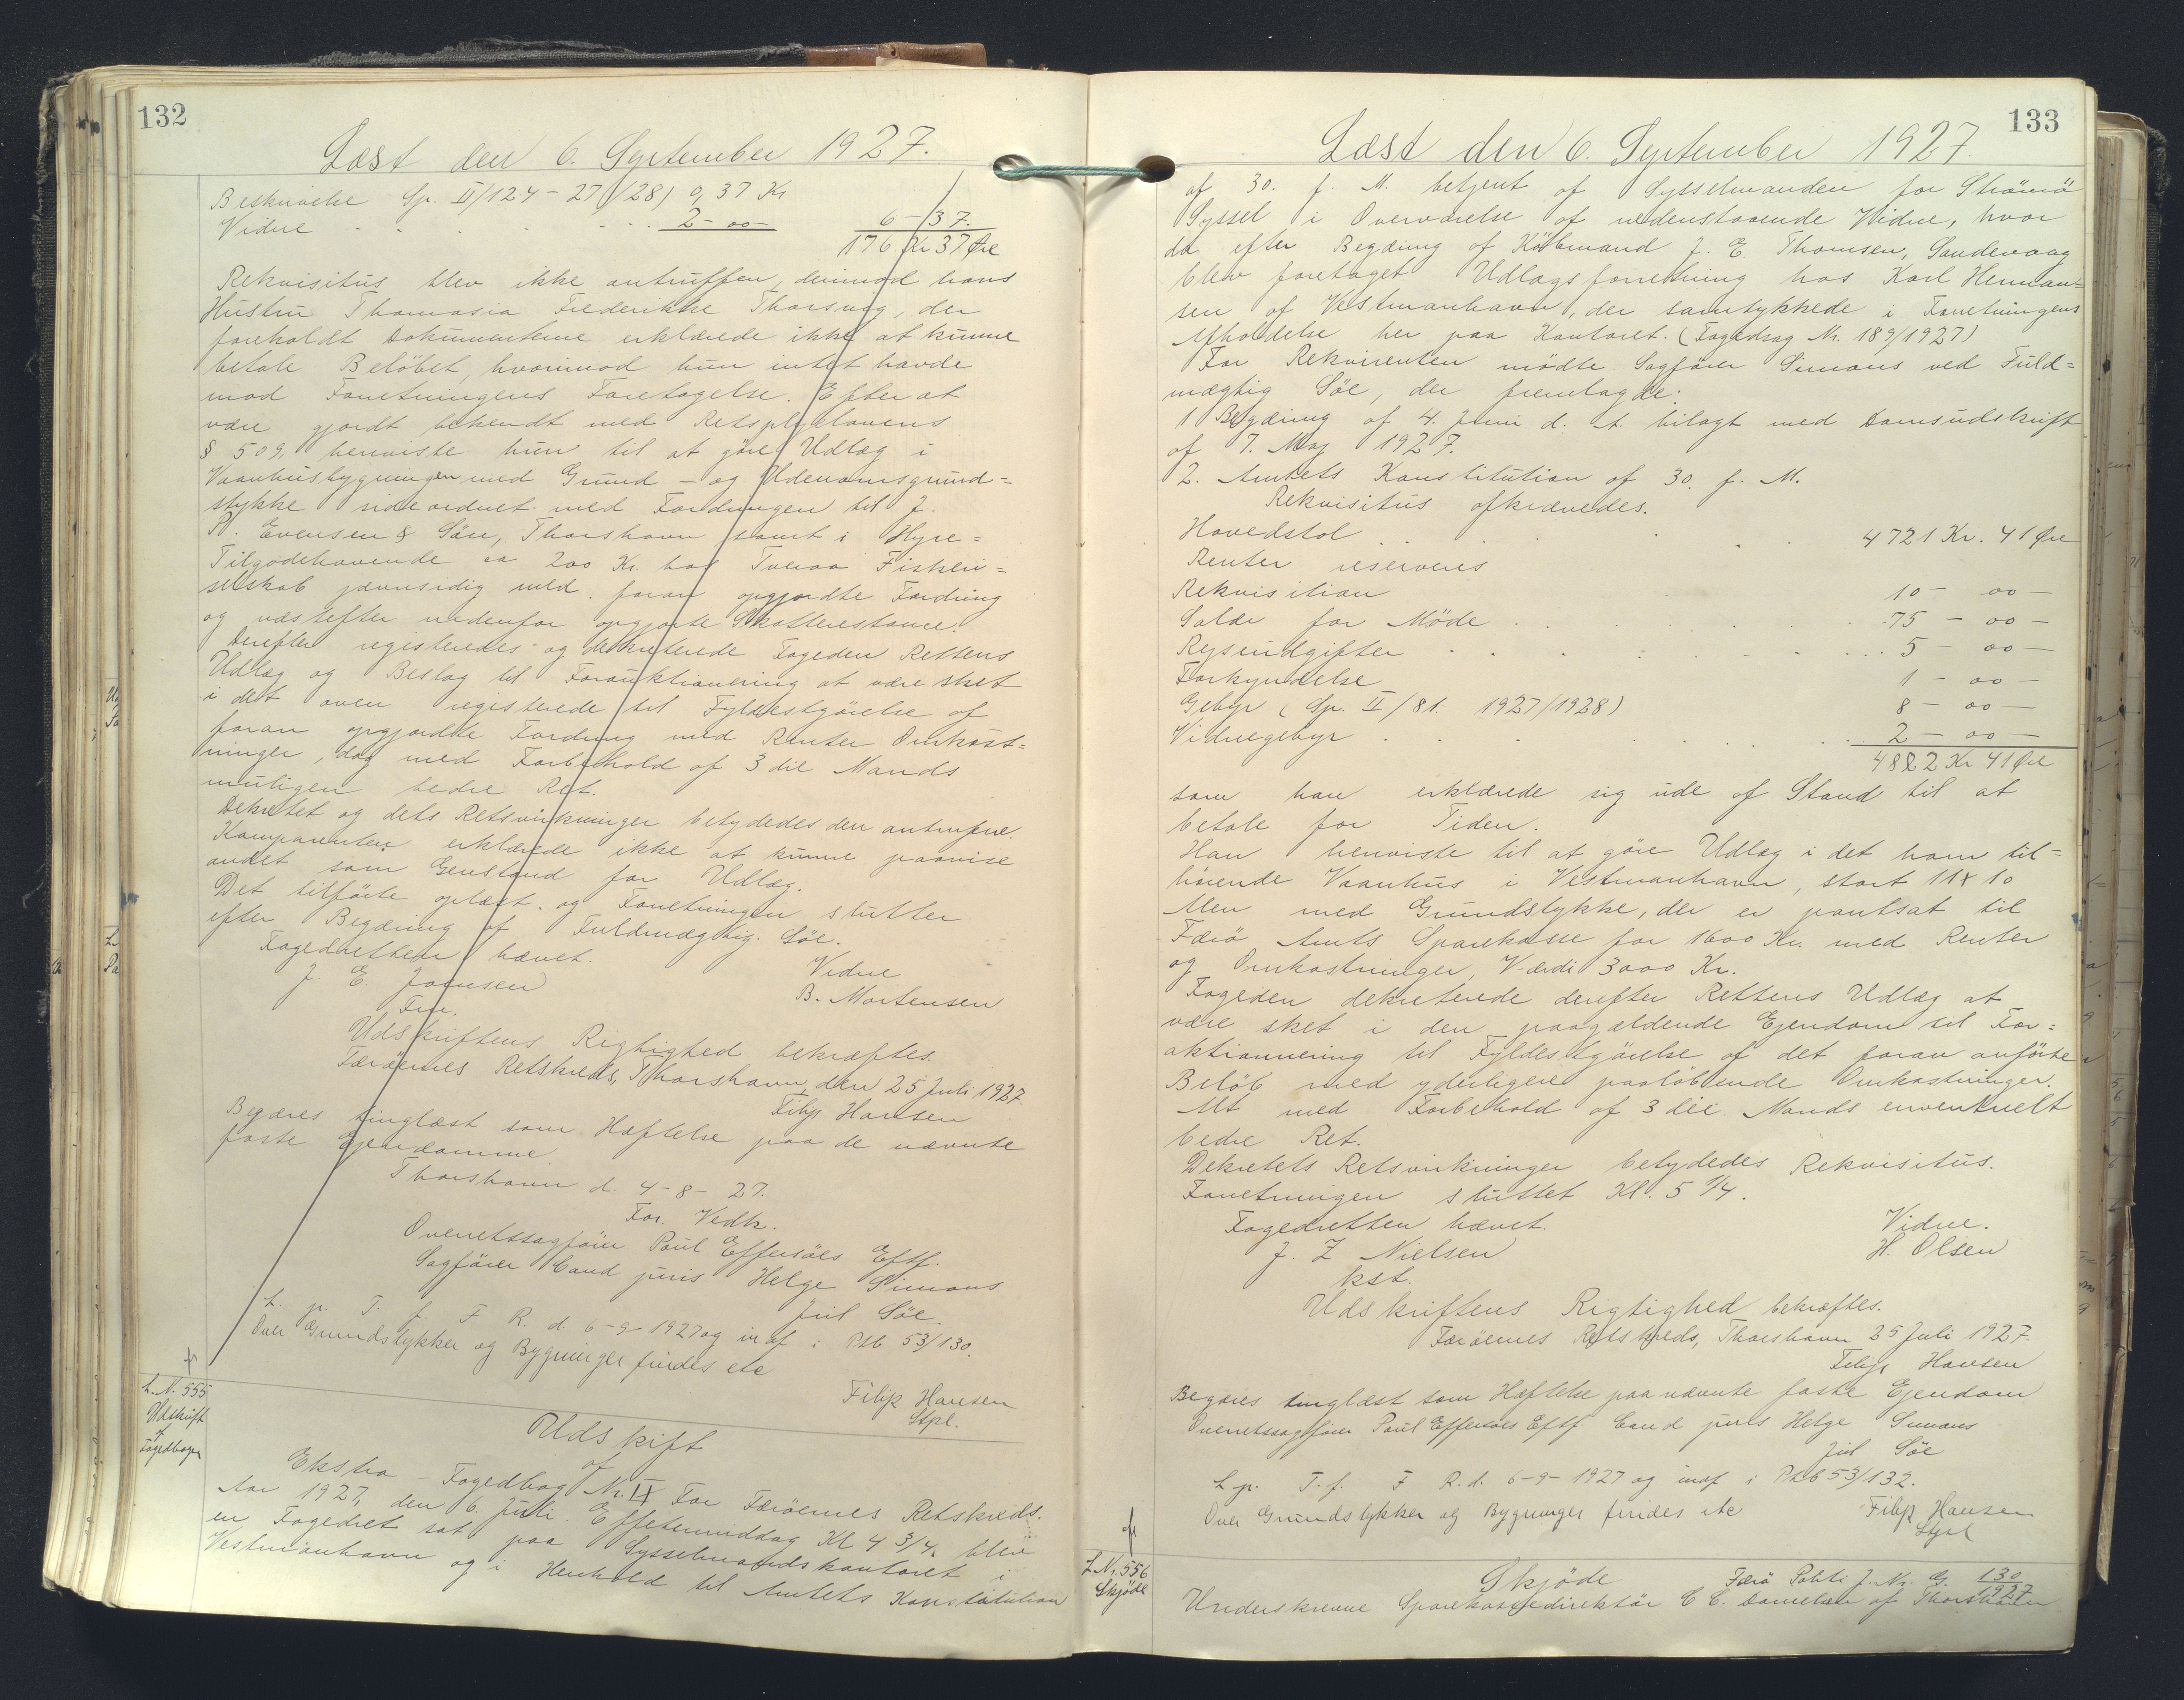 132
Læst den 6. September 1927.
Beskrivelse Sp. II/124-27/28) 0,37 Kr
Vidne . . . . . . 2-00 6-37.
176 Kr 37 Øre
Rekvisitus blev ikke antruffen, derimod hans
Hustru Thomasia Frederikke Thorsvig, der
foreholdt Dokumenterne erklærede ikke at kunne
betale Beløbet, hvorimod hun intet havde
mod Forretningens Foretagelse. Efter at
være gjordt bekendt med Retsplejelovens
§ 509, henviste hun til at göre Udlæg i
Vaanhusbygningen med Grund- og Udenomsgrund=
stykke sideordnet med Fordringen til J.
P. Evensen & Sön, Thorshavn samt i Hyre=
Tilgodehavende ca 200 Kr. hos Tveraa Fiskeri=
selskab jævnsidig med foran opgjordte Fordring
og næstefter nedenfor opgjorte Skatterestance.
Derefter registeredes og dekreterede Fogeden Rettens
Udlæg og Beslag til Forauktionering at være sket
i det oven registerede til Fyldestgörelse af
foran opgjordte Fordring med Renter Omkost=
ninger, dog med Forbehold af 3die Mands
muligen bedre Ret.
Dekretet og dets Retsvirkninger betydedes den antrufne.
Komparenten erklærede ikke at kunne paavise
andet som Genstand for Udlæg.
Det tilförte oplæst. og Forretningen slutter
efter Begæring af Fuldmægtig. Söe.
Fogedretten hævet.
J. E. Joensen Vidne
Fm. B. Mortensen
Udskriftens Rigtighed bekræftes.
Færöernes Retskreds, Thorshavn, den 25 Juli 1927.
Filip Hansen
Begæres tinglæst som Hæftelse paa de nævnte
faste Ejendomme
Thorshavn d. 4-8-27.
For. Vedk.
Overretssagförer Poul Effersöes Eftf.
Sagförer Cand juris Helge Simons
Juul Söe.
L. p. T. f. F R. d. 6-9-1927 og indf i Ptb 53/130.
Over Grundstykker og Bygninger findes etc
Filip Hansen
Stpl.
L. N. 555
Udskrift
af
Fogedbogen
Udskift
af
Ekstra-Fogedbog Nr. IX For Færöernes Retskreds.
Aar 1927, den 6. Juli. Eftermiddag Kl 4 3/4. blev
en Fogedret sat paa Sysselmandskontoret i
Vestmanhavn og i Henhold til Amtets Konstitution
133
Læst den 6. September 1927.
af 30. f. M. betjent af Sysselmanden for Strömö
Syssel i Overværelse af nedenstaaende Vidne, hvor
da efter Begæring af Köbmand J. E. Thomsen, Sandevaag
blev foretaget Udlægsforretning hos Karl Herman=
sen af Vestmanhavn, der samtykkede i Forretningens
Afholdelse her paa Kontoret. (Fogedsag Nr. 189/1927)
For Rekvirenten mödte Sagförer Simons ved Fuld=
mægtig Söe, der fremlagde:
1 Begæring af 4. Juni d. A. bilagt med Domsudskrift
af 7. Maj 1927.
2. Amtets Konstitution af 30. f. M.
Rekvisitus afkrævedes.
Hovedstol . . . . 4721 Kr. 41 Øre
Renter reserveres
Rekvisition 10 - 00 -
Salær for Möde . . . . 75 - 00 -
Rejseudgifter . . . . 5 - 00 -
Forkyndelse 1 - 00 -
Gebyr (Sp. II/81. 1927/1928) 8 - 00 -
Vidnegebyr . . . . 2 - 00 -
4822 Kr 41 Øre
som han erklærede sig ude af Stand til at
betale for Tiden.
Han henviste til at göre Udlæg i det ham til=
hörende Vaanhus i Vestmanhavn, stort 11 x 10
Alen med Grundstykke, der er pantsat til
Færö Amts Sparekasse for 1600 Kr. med Renter
og Omkostninger, Værdi 3000 Kr.
Fogeden dekreterede derefter Rettens Udlæg at
være sket i den paagældende Ejendom til For=
aktionnering til Fyldestgörelse af det foran anförte
Belöb med yderligere paalöbende Omkostninger.
Alt med Forbehold af 3 die Mands enventuelt
bedre Ret.
Dekretets Retsvirkninger betydedes Rekvisitus.
Forretningen sluttet Kl. 5 1/4.
Fogedretten hævet. Vidne.
J. Z Nielsen H. Olsen
kst.
Udskriftens Rigtighed bekræftes.
Færöernes Retskreds, Thorshavn 25 Juli 1927.
Filip Hansen
Begæres tinglæst som Hæftelse paa nævnte faste Ejendom
Overretssagförer Poul Effersöes Eftf Cand juris Helge Simons
Juul Söe
L. p. T. f. F R. d. 6-9-1927 og indf i Ptb 53/132.
Over Grundstykker og Bygninger findes etc Filip Hansen
Stpl
L. Nr. 556
Skjöde
Skjöde Færö Politi J. Nr. G. 130/1927
Underskrevne Sparekassedirektör C C. Danielsen af Thorshavn